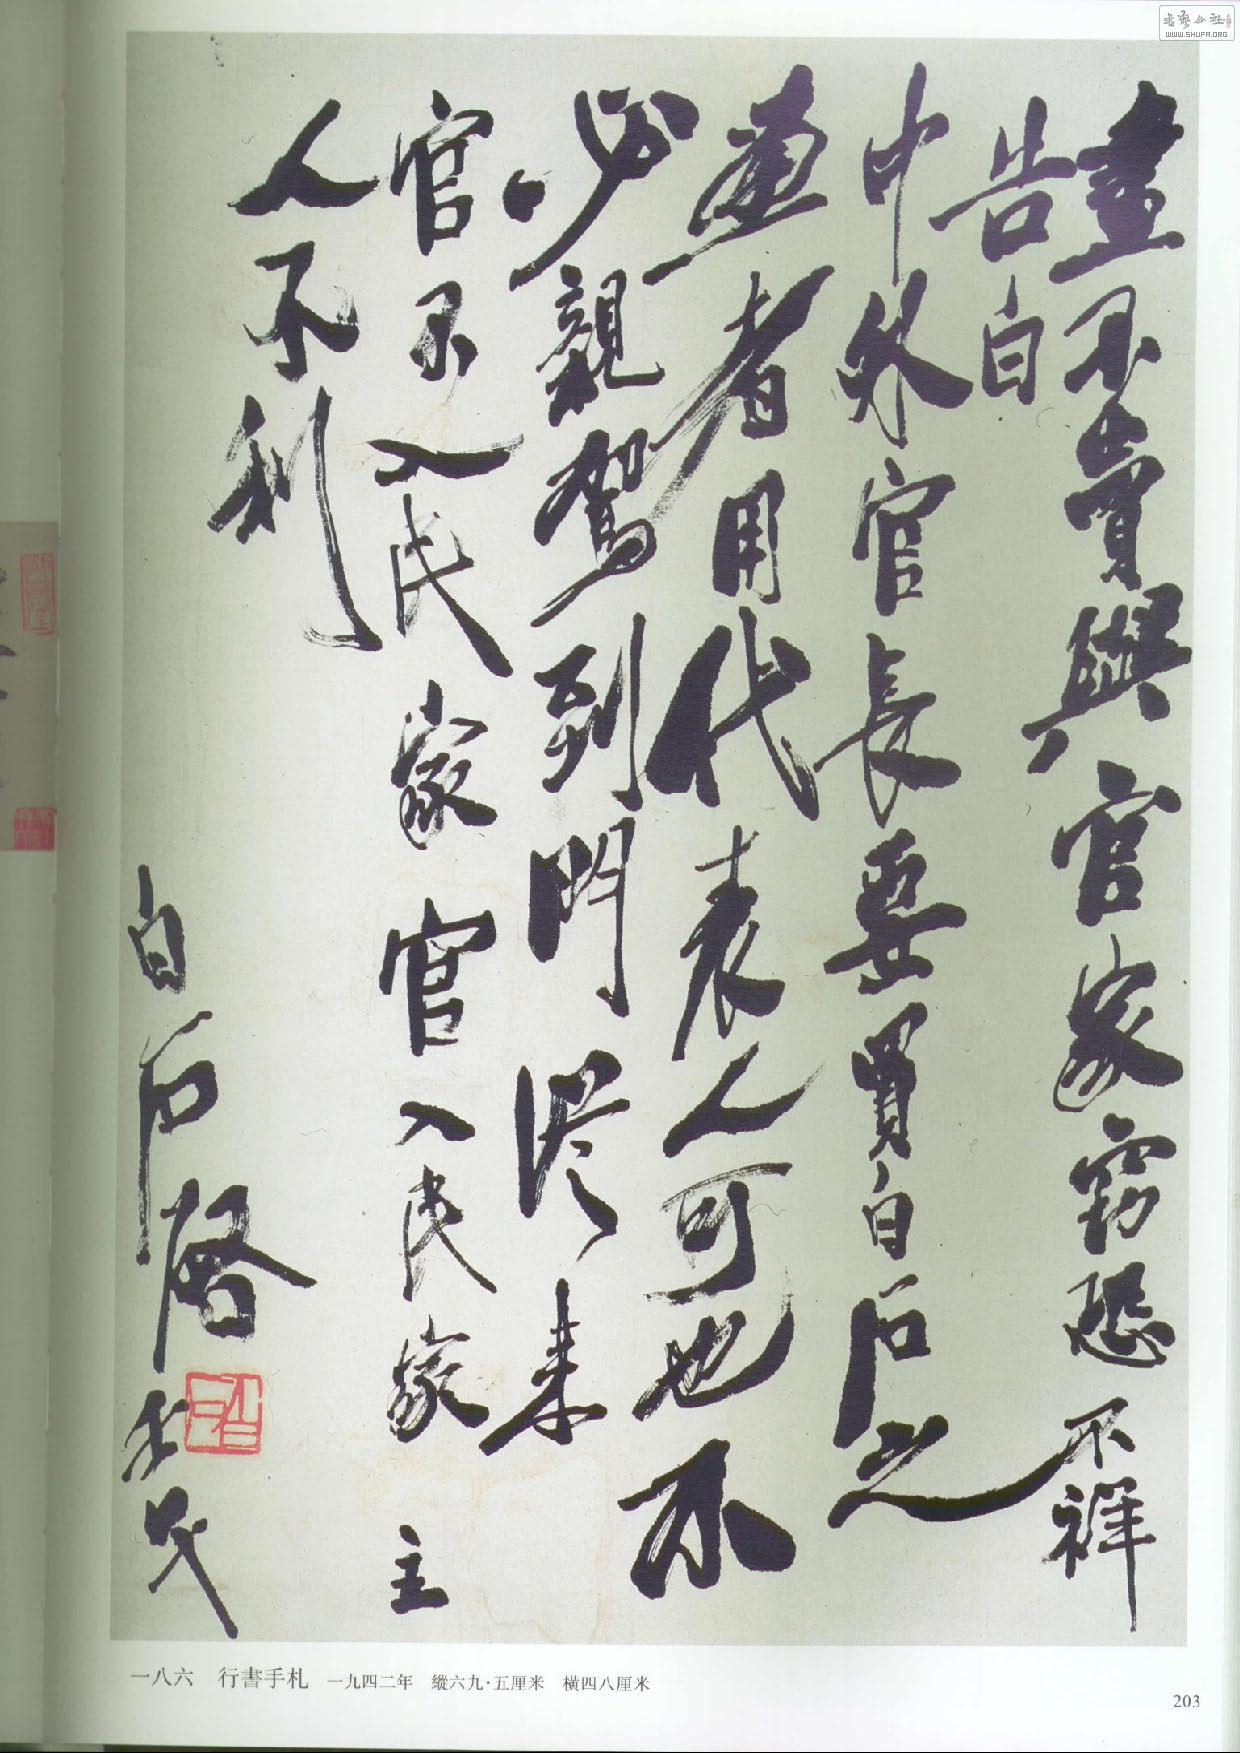 畫不賣與官家竊恐不祥
告白
中外官長要買白石之
畫者用代表人可也不
必親駕到門從來
官不入民家官入民家主
人不利
白石啓
一八六 行書手札 一九四二年 縱六九·五厘米 橫四八厘米
203
書藝公社
WWW.SHUFA.ORG